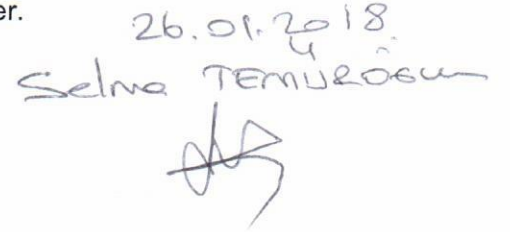 er.
26.01.2018
Selma TEMUROĞLU